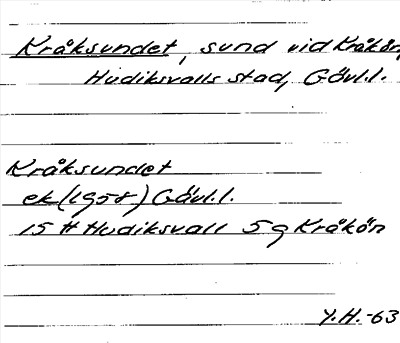 Kråksundet, sund vid Kråkön,
Hudiksvalls stad, Gävl.l.
Kråksundet
ek (1958) Gävl.l.
15 H Hudiksvall 5 g Kråkön
Y.H.-63